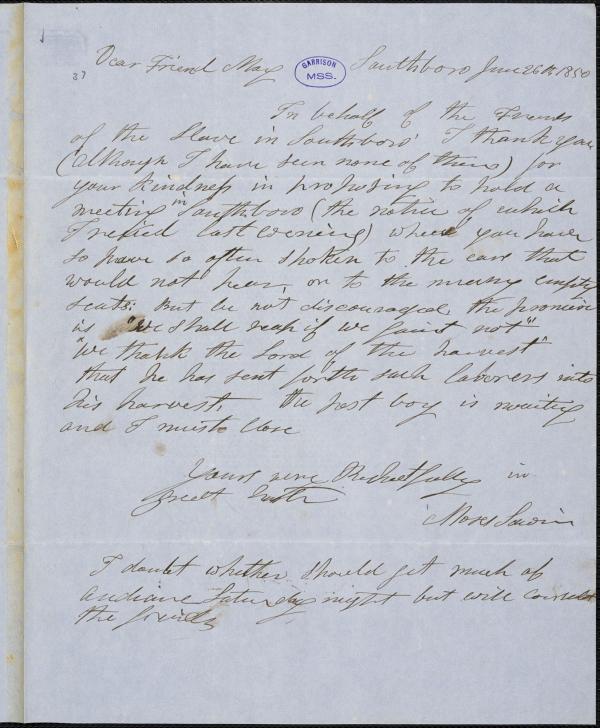 37
Dear Friend May GARRISON MSS. Southboro June 26th 1850
In behalf of the Friends
of the Slave in Southboro' I thank you
(although I have seen none of them) for
your kindness in proposing to hold a
meeting in Southboro (the notice of which
I recied last evening) where you have
so have so often spoken to the ears that
would not hear, or to the many empty
seats: But be not discouraged, the promise
is "we shall reap if we faint not"
"We thank the Lord of the harvest"
that he has sent forth such laborers into
his harvest. the post boy is waiting
and I must close
Yours very Respectfully in
Moses Sawin
I doubt whether should get much of
audiance Saturday night but will consult
the friends